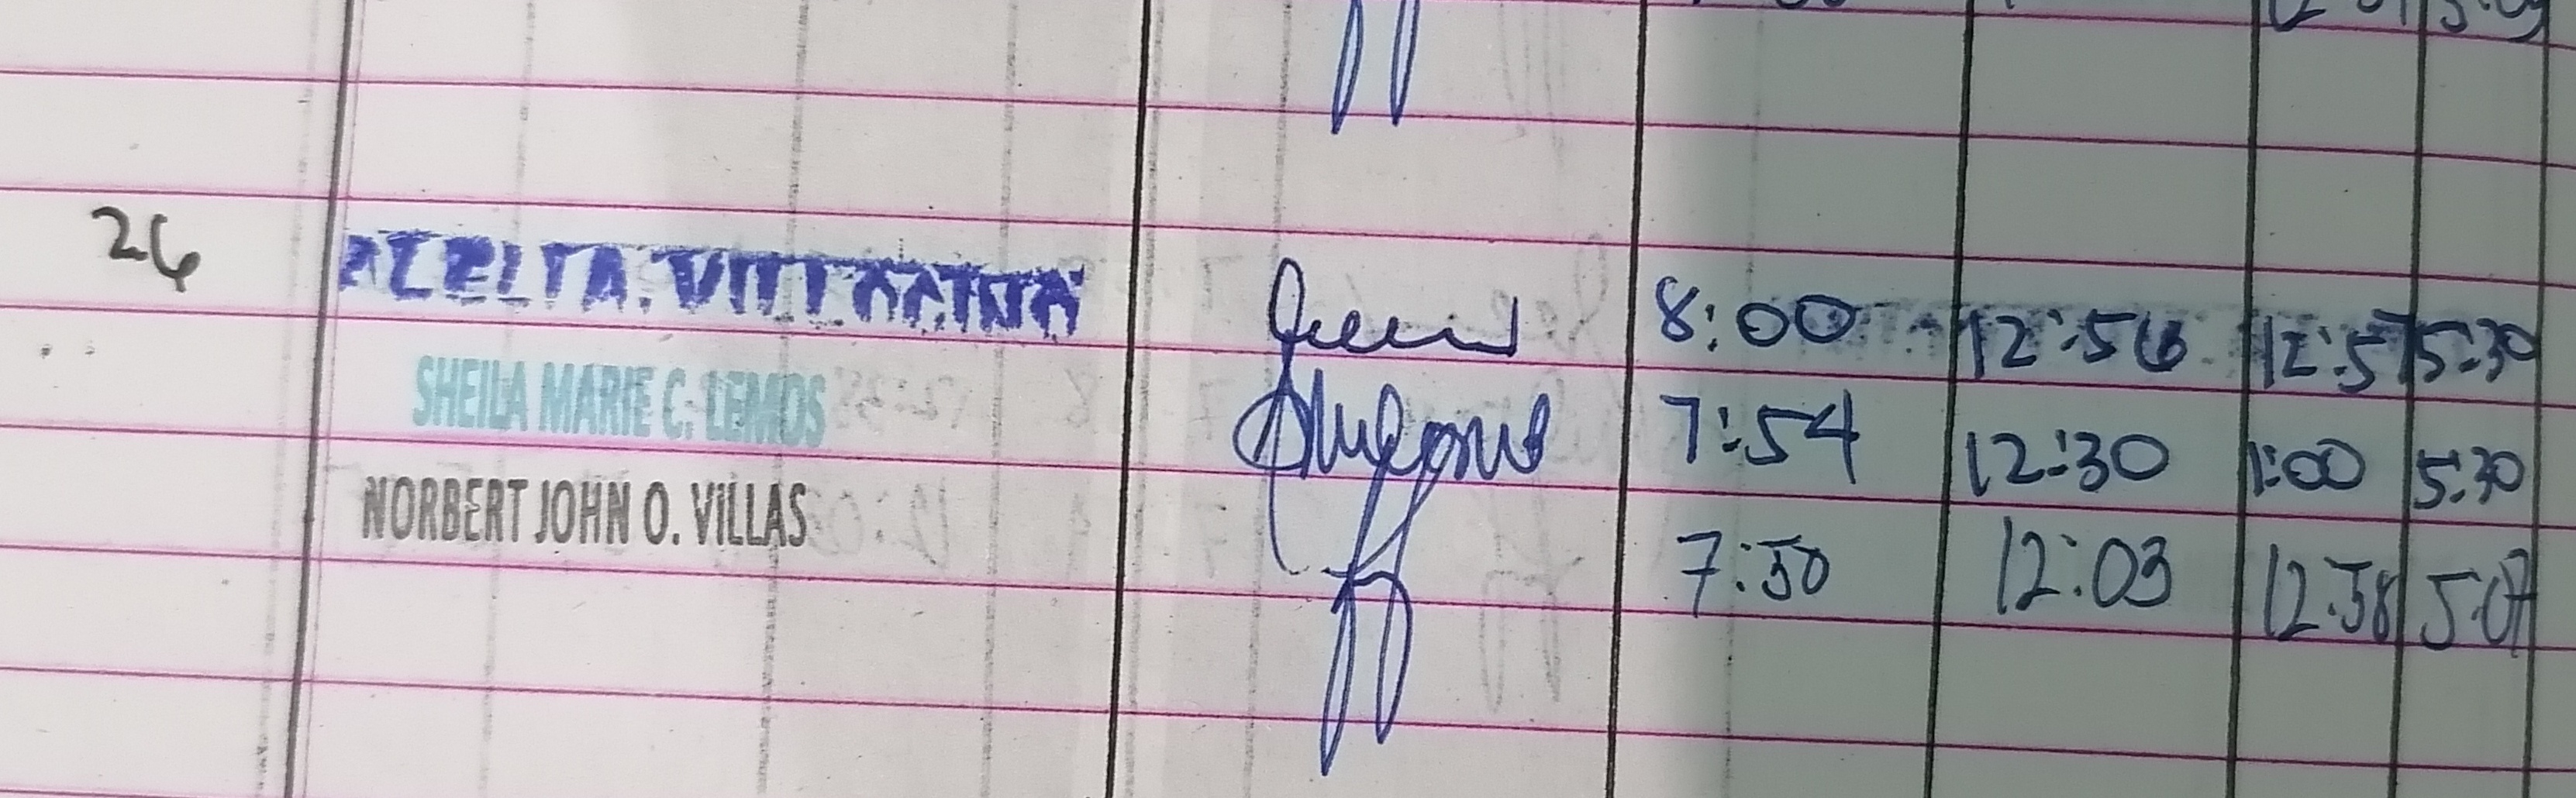 26 8:00 12:56 12:57 5:30
SHEILA MARIE C. LEMOS 7:54 12:30 1:00 5:30
NORBERT JOHN O. VILLAS 7:50 12:03 12:58 5:07